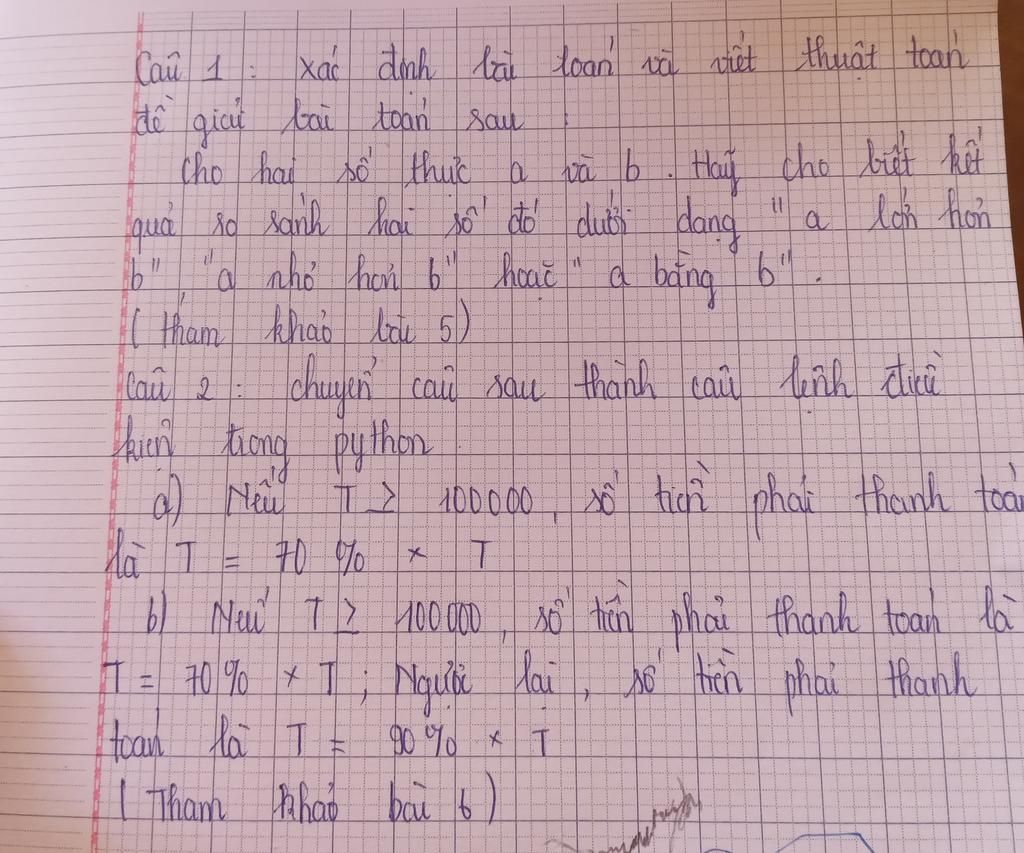 Câu 1 : xác định bài toán và viết thuật toán
để giải bài toán sau :
Cho hai số thực a và b. Hãy cho biết kết
quả so sánh hai số đó dưới dạng "a lớn hơn
b", "a nhỏ hơn b" hoặc "a bằng b".
( Tham khảo bài 5)
Câu 2 : chuyển câu sau thành câu lệnh điều
kiện trong python
a) Nếu T ≥ 100000, số tiền phải thanh toán
là T = 70 % × T
b) Nếu T ≥ 100000, số tiền phải thanh toán là
T = 70% × T ; Người lại, số tiền phải thanh
toán là T = 90% × T
( Tham khảo bài 6)